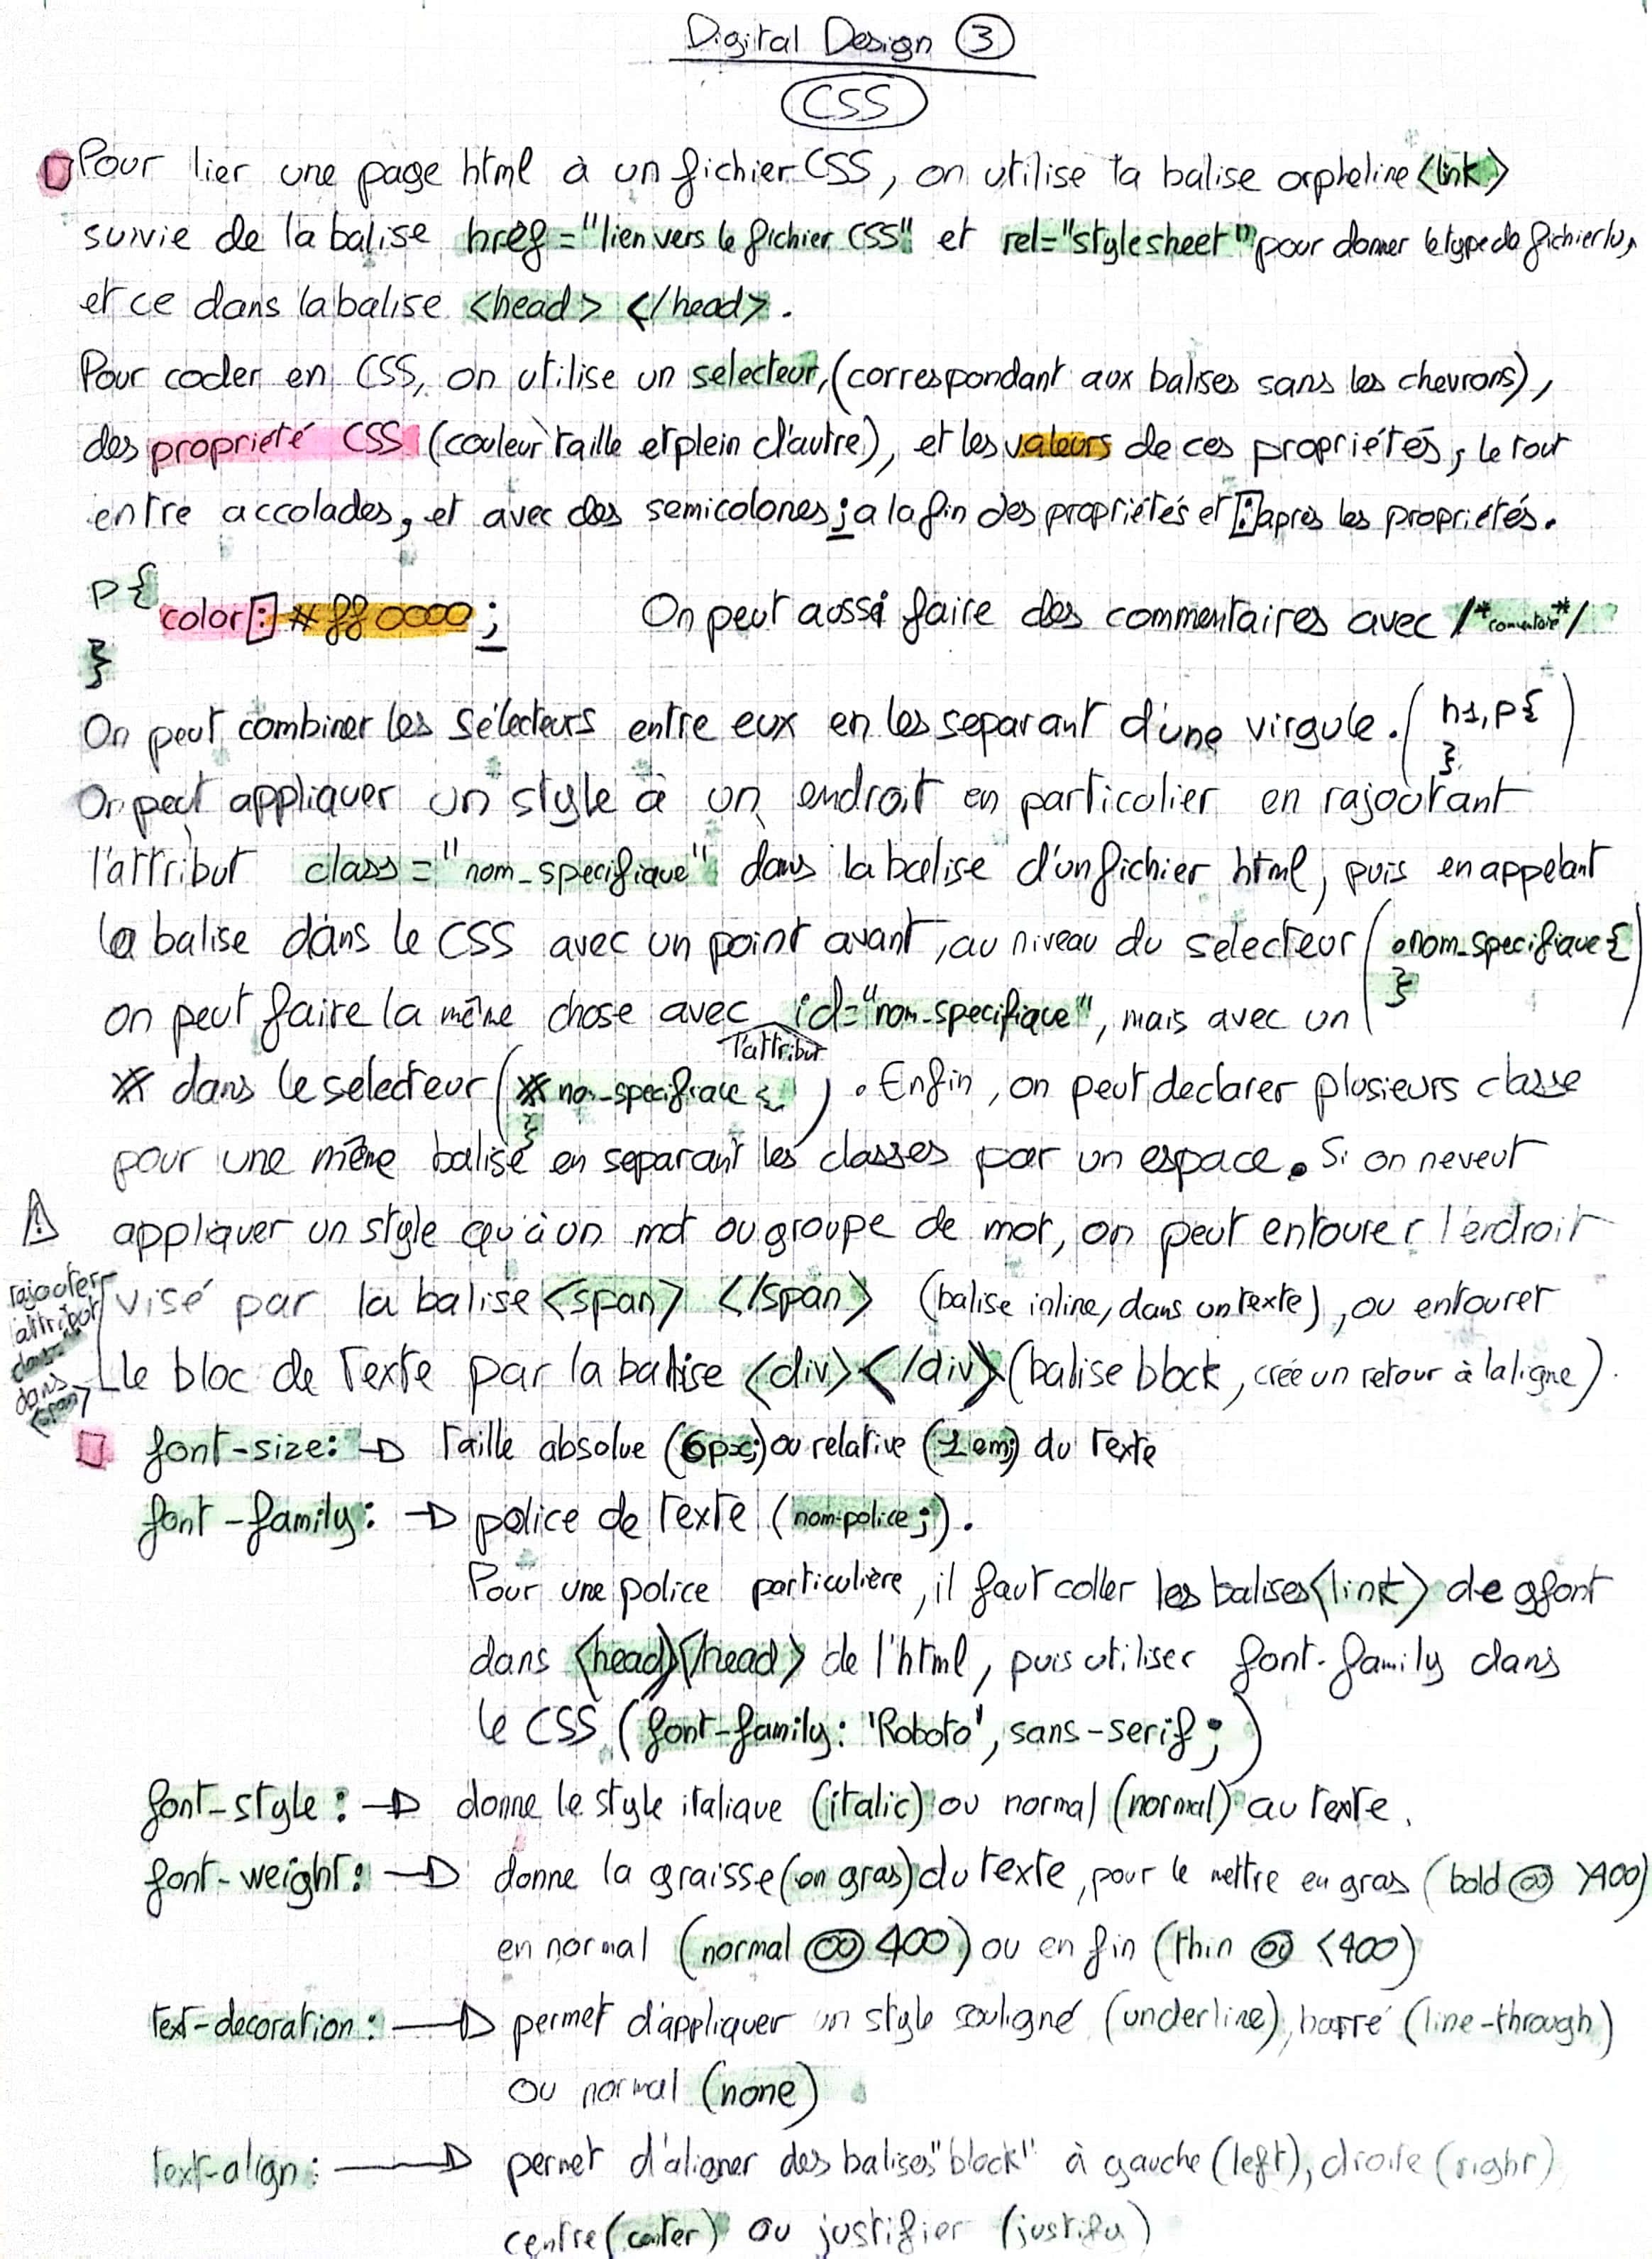 Digital Design ③
CSS
Pour lier une page html à un fichier CSS, on utilise la balise orpheline <link>
suivie de la balise href="lien vers le fichier CSS" et rel="stylesheet" pour donner le type de fichier lu,
et ce dans la balise <head> </head>.
Pour coder en CSS, on utilise un selecteur, (correspondant aux balises sans les chevrons),
des propriété CSS (couleur taille et plein d'autre), et les valeurs de ces propriétés, le tout
entre accolades, et avec des semicolones ; a la fin des propriétés et : après les propriétés.
p{
color: #ff0000; On peut aussi faire des commentaires avec /* comentaire */
}
On peut combiner les sélecteurs entre eux en les separant d'une virgule. ( h1, p{ } )
On peut appliquer un style à un endroit en particulier en rajoutant
l'attribut class="nom_specifique" dans la balise d'un fichier html, puis en appelant
la balise dans le CSS avec un point avant, au niveau du selecteur ( .nom_specifique { } )
on peut faire la même chose avec l'attribut id="nom_specifique", mais avec un
# dans le selecteur ( # nom_specifique { } ). Enfin, on peut declarer plusieurs classe
pour une même balise en separant les classes par un espace. Si on ne veut
appliquer un style qu'à un mot ou groupe de mot, on peut entourer l'endroit
visé par la balise <span> </span> (balise inline, dans un texte), ou entourer
le bloc de texte par la balise <div></div> (balise block, crée un retour à la ligne).
rajouter
attribut
dans
<span>
font-size: → taille absolue (6px;) ou relative (1em;) du texte
font-family: → police de texte (nom-police;).
Pour une police particulière, il faut coller les balises <link> de gfont
dans <head></head> de l'html, puis utiliser font-family dans
le CSS (font-family: 'Roboto', sans-serif;)
font-style: → donne le style italique (italic) ou normal (normal) au texte.
font-weight: → donne la graisse (en gras) du texte, pour le mettre en gras (bold ou >400)
en normal (normal ou 400) ou en fin (thin ou <400)
text-decoration: → permet d'appliquer un style souligné (underline), barré (line-through)
ou normal (none)
text-align: → permet d'aligner des balises "block" à gauche (left), droite (right)
centre (center) ou justifier (justify)